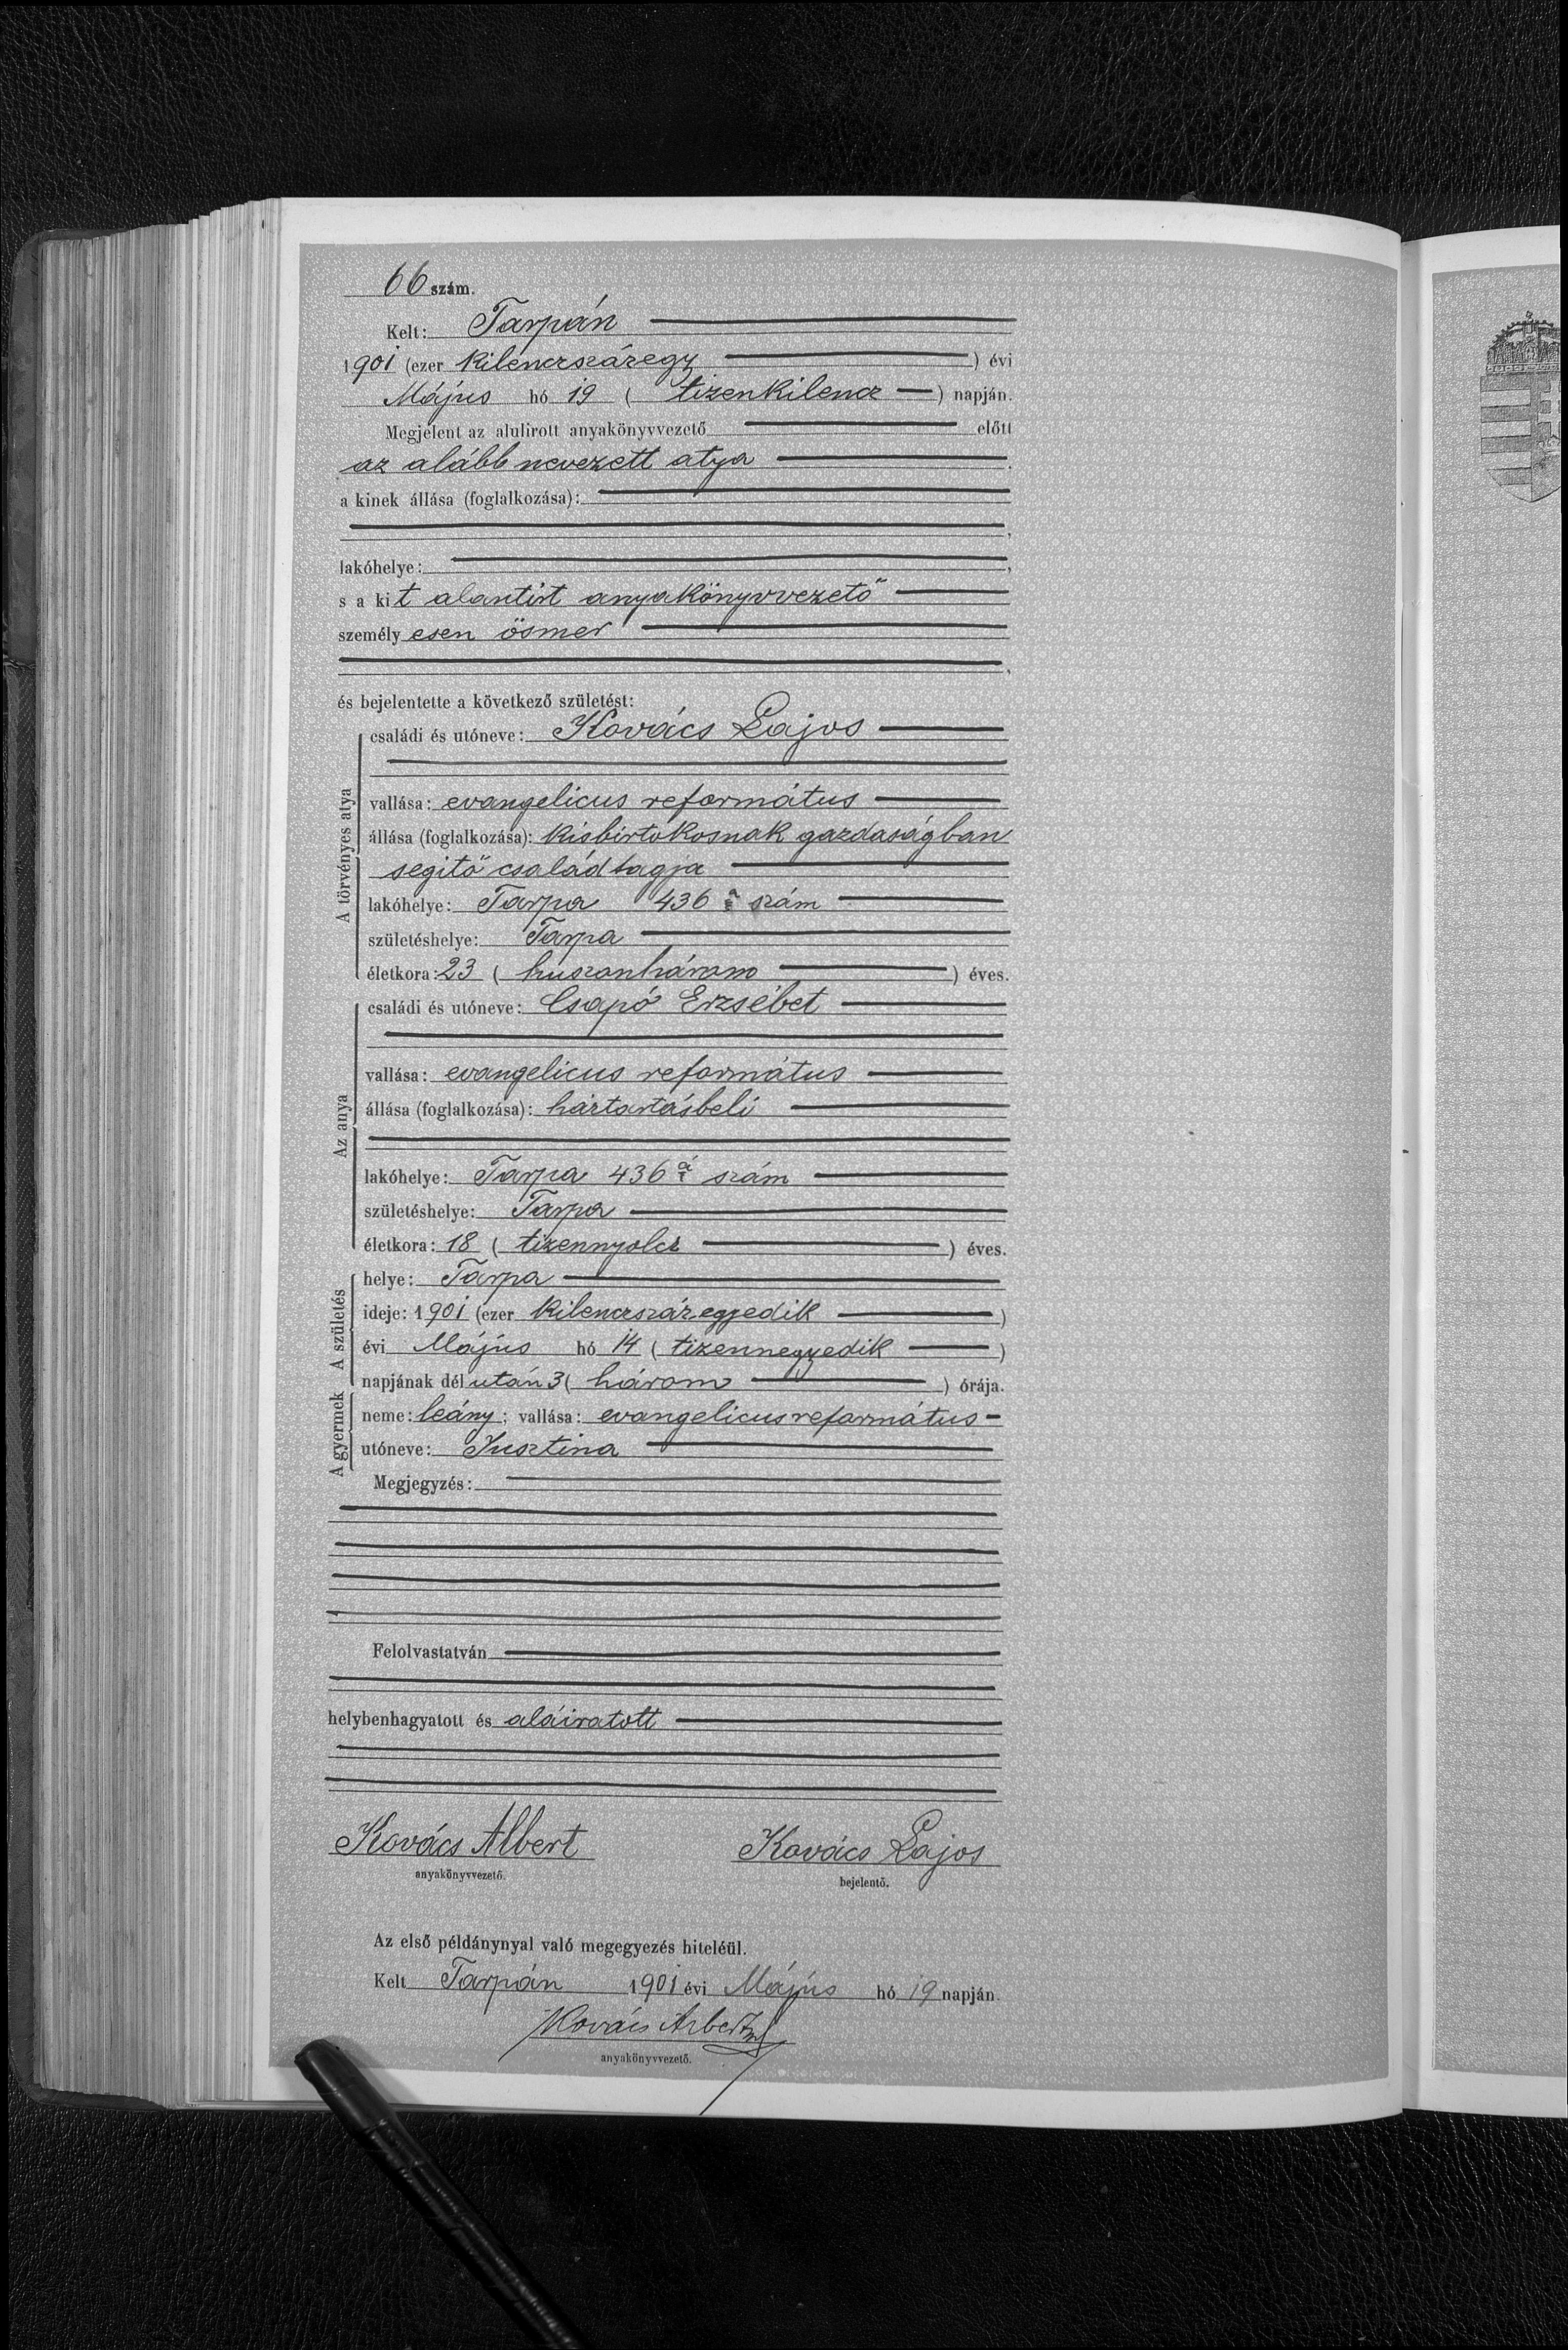 66 szám.
Kelt: Tarpán
1901 (ezer kilenczszázegy) évi
Május hó 19 (tizenkilencz) napján.
Megjelent az alulirott anyakönyvvezető előtt
az alább nevezett atya
a kinek állása (foglalkozása):
lakóhelye:
s a kit alantirt anyakönyvvezető
személyesen ösmer
és bejelentette a következő születést:
A törvényes atya
családi és utóneve: Kovács Lajos
vallása: evangelicus református
állása (foglalkozása): kisbirtokosnak gazdaságban
segitő családtagja
lakóhelye: Tarpa 436 a szám
születéshelye: Tarpa
életkora: 23 (huszonhárom) éves.
Az anya
családi és utóneve: Csapó Erzsébet
vallása: evangelicus református
állása (foglalkozása): háztartásbeli
lakóhelye: Tarpa 436 a szám
születéshelye: Tarpa
életkora: 18 (tizennyolcz) éves.
A születés
helye: Tarpa
ideje: 1901 (ezer kilenczszázegyedik)
évi Május hó 14 (tizennegyedik)
napjának délután 3 (három) órája.
A gyermek
neme: leány; vallása: evangelicus református
utóneve: Jusztina
Megjegyzés:
Felolvastatván
helybenhagyatott és aláiratott
Kovács Albert Kovács Lajos
anyakönyvvezető. bejelentő.
Az első példánynyal való megegyezés hiteléül.
Kelt Tarpán 1901 évi Május hó 19 napján.
Kovács Albert
anyakönyvvezető.